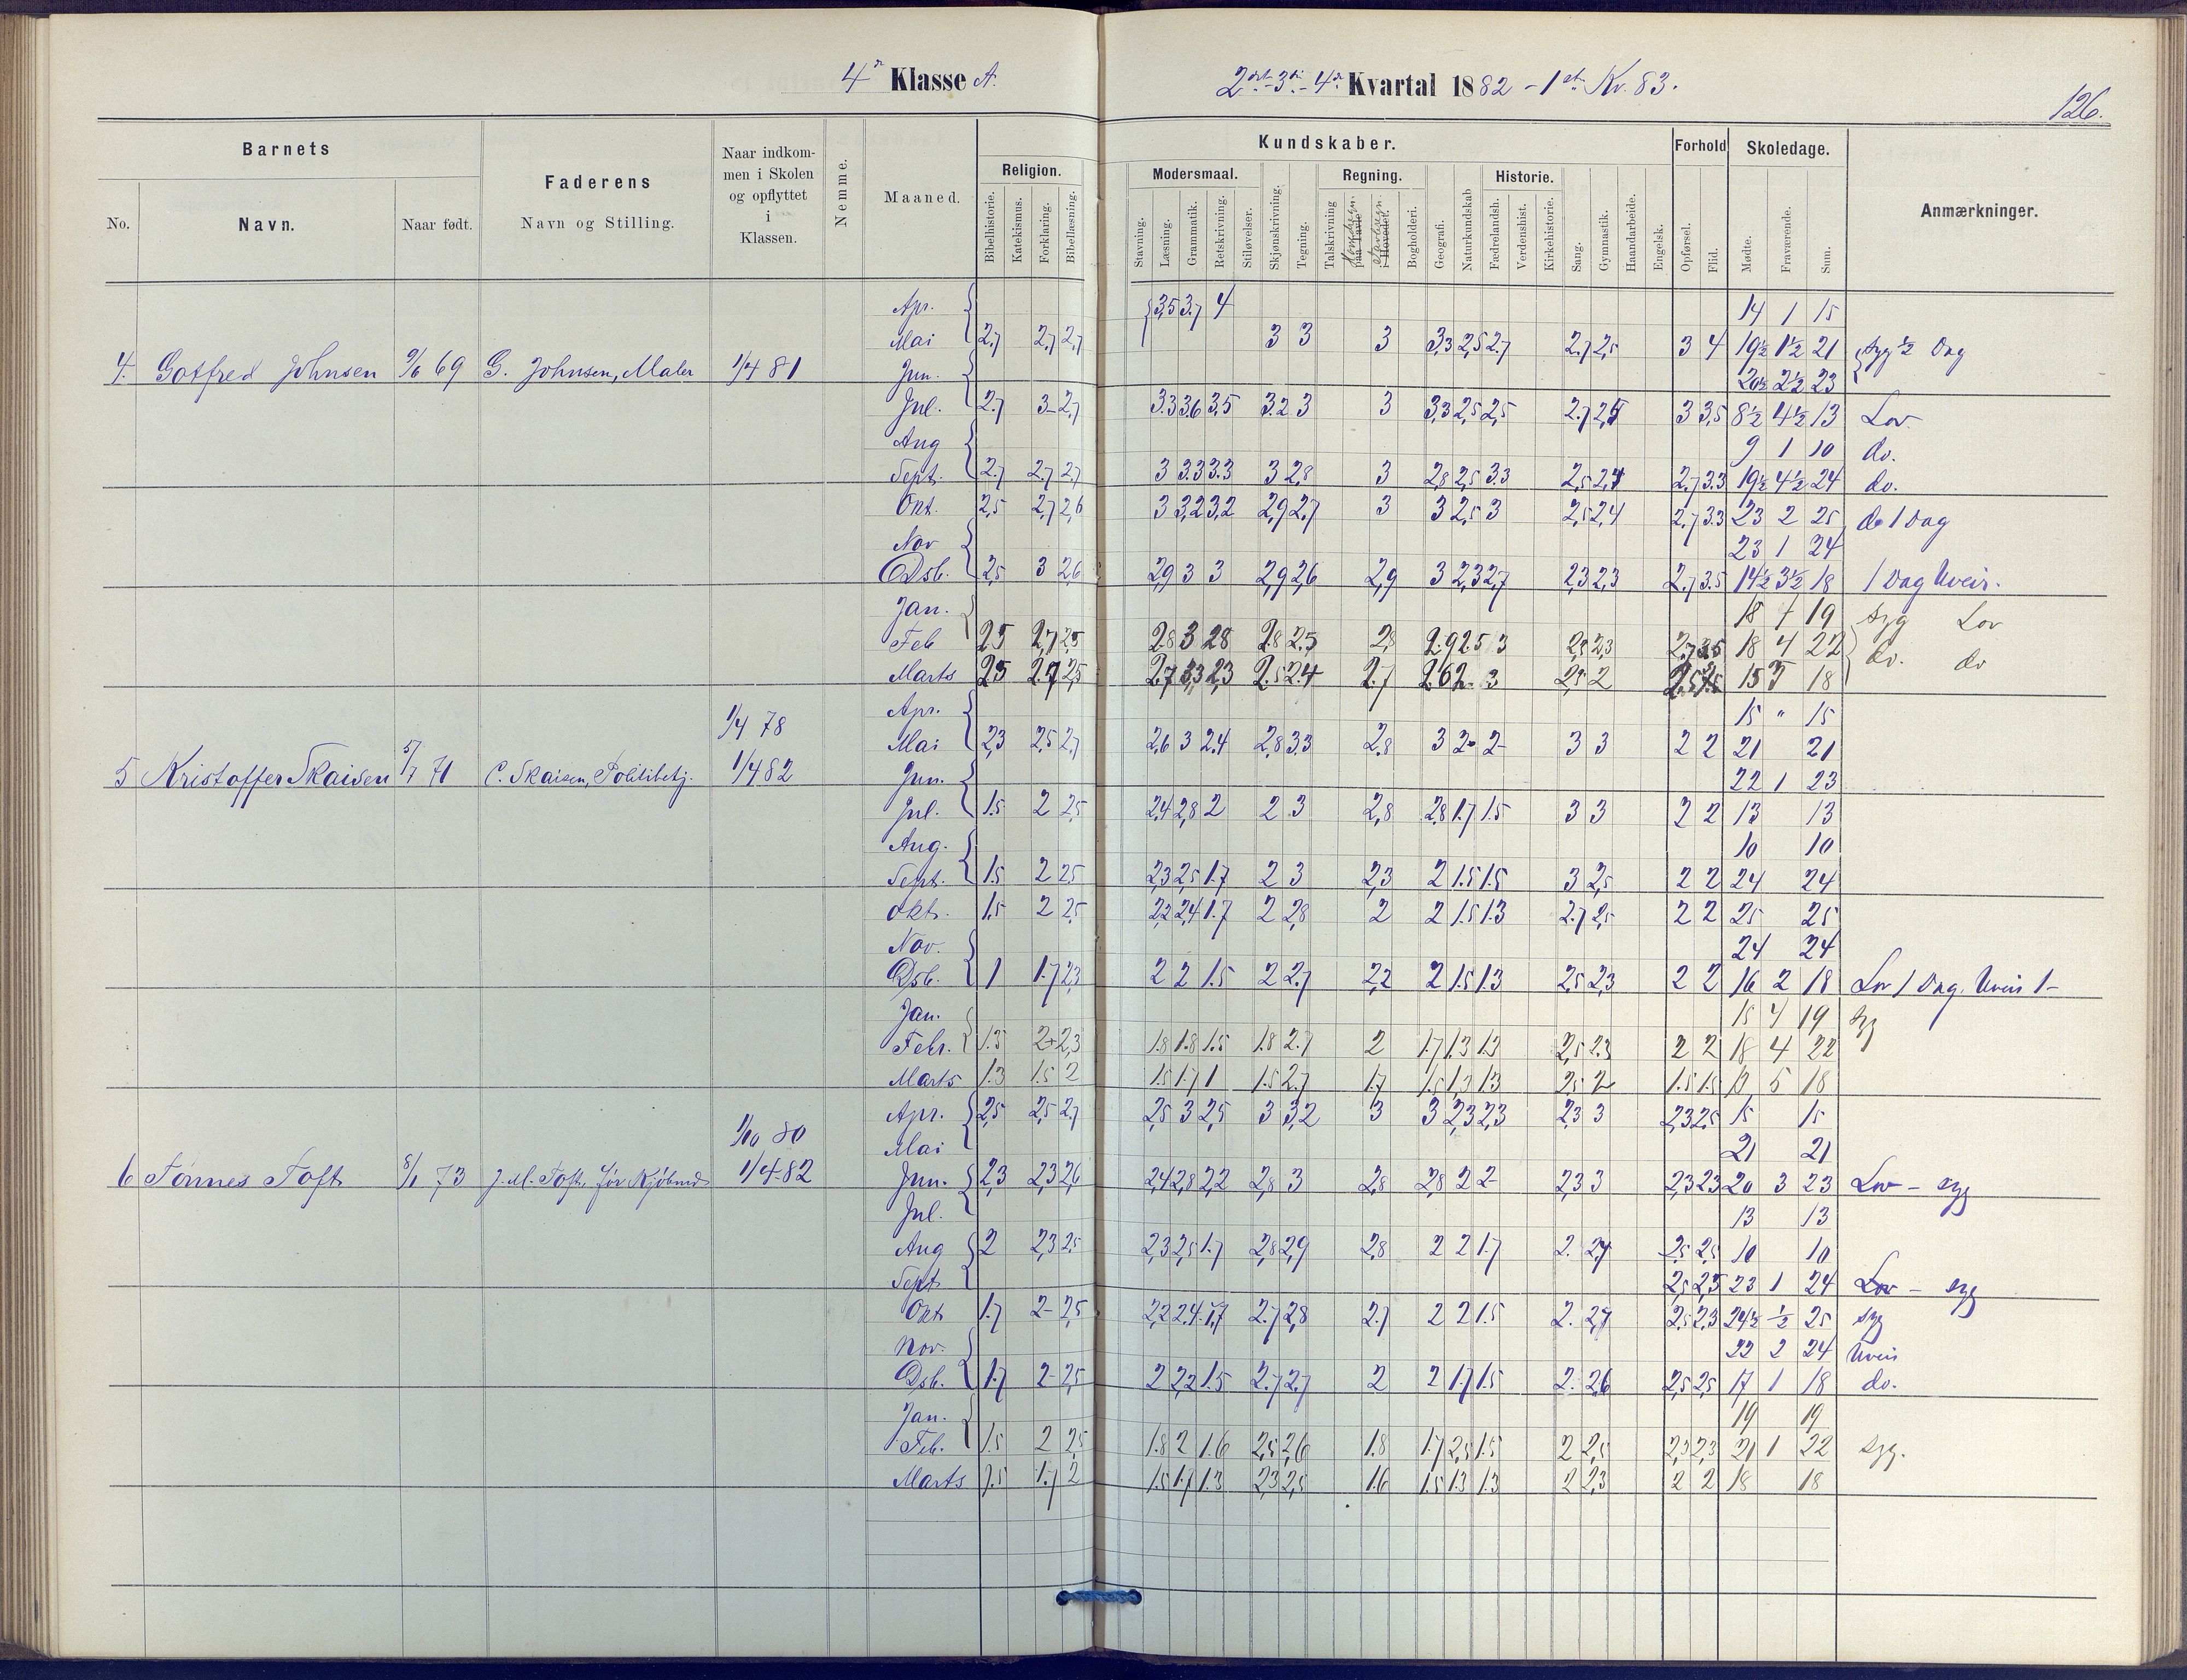 4de Klasse A.
2det-3die-4de Kvartal 1882 - 1ste Kv. 83.
126.
Barnets
No.
Navn.
Naar født.
Faderens
Navn og Stilling.
Naar indkom-
men i Skolen
og opflyttet
i
Klassen.
Nemme.
Maaned.
Kundskaber.
Religion.
Bibelhistorie.
Katekismus.
Forklaring.
Bibellæsning.
Modersmaal.
Stavning.
Læsning.
Grammatik.
Retskrivning.
Stiløvelser.
Skjønskrivning.
Tegning.
Regning.
Talskrivning
paa Tavle
i Hovedet.
Bogholderi.
Geografi.
Naturkundskab
Historie.
Fædrelandsh.
Verdenshist.
Kirkehistorie.
Sang.
Gymnastik.
Haandarbeide.
Engelsk.
Forhold
Opførsel.
Flid.
Skoledage.
Mødte.
Fraværende.
Sum.
Anmærkninger.
Apr. 3,5 3,7 4 14 1 15
Mai 2,7 2,7 2,7 3 3 3 3,3 2,5 2,7 2,7 2,5 3 4 19½ 1½ 21 syg ½ Dag
4. Gotfred Johnsen 9/6 69 G. Johnsen, Maler 1/4 81 Jun. 20½ 2½ 23
Jul. 2,7 3- 2,7 3.3 3.6 3,5 3.2 3 3 3,3 2,5 2,5 2,7 3 3,5 8½ 4½ 13 Lov
Aug 9 1 10 do.
Sept. 2,7 2,7 2,7 3 3.3 3.3 3 2,8 3 2,8 2,5 3.3 2,5 2,4 2,7 3.3 19½ 4½ 24 do.
Okt. 2,5 2,7 2,6 3 3,2 3,2 2,9 2,7 3 3 2,5 3 2,5 2,4 2,7 3.3 23 2 25 do 1 Dag
Nov 23 1 24
Dsb. 2,5 3 2,6 2,9 3 3 2,9 2,6 2,9 3 2,3 2,7 2,3 2,3 2.7 3.5 14½ 3½ 18 1 Dag Uveir.
Jan. 18 1 19 syg Lov
Feb 2 5 2,7 2,5 2.8 3 2 8 2.8 2.5 2,8 2.9 2.5 3 2,3 18 4 22 do. do
Marts 2 5 2.7 2,5 2.5 2.4 2.7 2.6 2. 3 2 15 3 18
Apr. 15 " 15
1/4 78
Mai 2,3 2,5 2,7 2,6 3 2.4 2,8 3.3 2,8 3 2- 2- 3 3 2 2 21 21
5 Kristoffer Skaisen 5/7 71 C. Skaisen, Politibetj. 1/4 82 Jun. 22 1 23
Jul. 1.5 2 2,5 2,4 2,8 2 2 3 2,8 2,8 1.7 1.5 3 3 2 2 13 13
Aug. 10 10
Sept. 1.5 2 2,5 2,3 2,5 1.7 2 3 2,3 2 1.5 1.5 3 2,5 2 2 24 24
Okt. 1,5 2 2,5 2,2 2,4 1.7 2 2,8 2 2 1.5 1.3 2.7 2,5 2 2 25 25
Nov. 24 24
Dsb. 1 1.7 2,3 2 2 1.5 2 2.7 2,2 2 1.5 1.3 2,5 2,3 2 2 16 2 18 Lov 1 Dag. Uveir 1-
Jan. 15 4 19 syg
Febr. 1.3 2+ 2,3 1.8 1.8 1.5 1.8 2.7 2 1.7 1.3 1.3 2,5 2.3 2 2 18 4 22
Marts 1.3 1.5 2 1.5 1.7 1 1.5 2.7 1.7 1.5 1.3 1.3 2,5 2 1.5 1.5 13 5 18
Apr. 2,5 2,5 2,7 2,5 3 2,5 3 3,2 3 3 2,3 2,3 2,3 3 2,3 2,5 15 15
1/10 80
Mai 21 21
6 Tönnes Toft 8/1 73 J. M. Toft, för Kjöbmd 1/4 82 Jun. 2,3 2,3 2,6 2,4 2,8 2,2 2,8 3 2,8 2,8 2 2- 2,3 3 2,3 2,3 20 3 23 Lov - syg
Jul. 13 13
Aug 2 2,3 2,5 2,3 2,5 1.7 2,8 2,9 2,8 2 2 1.7 2. 2,7 2,5 2,5 10 10
Sept 2,5 2,3 23 1 24 Lov - syg
Okt 1.7 2- 2,5 2,2 2.4 1,7 2.7 2,8 2.7 2 2 1.5 2. 2,7 2,5 2,3 24½ ½ 25 syg
Nov. 22 2 24 Uveir
Dsb. 1.7 2- 2,5 2 2,2 1.5 2.7 2.7 2 2 1.7 1.5 2. 2,6 2,5 2,5 17 1 18 do.
Jan. 19 19
Feb. 1.5 2 2,5 1.8 2 1.6 2,5 2,6 1.8 1.7 2,5 1.5 2 2,5 2,3 2,3 21 1 22 syg.
Marts 1.5 1.7 2 1.5 1.7 1.3 2,3 2,5 1.6 1.5 1.3 1.3 2 2,3 2 2 18 18